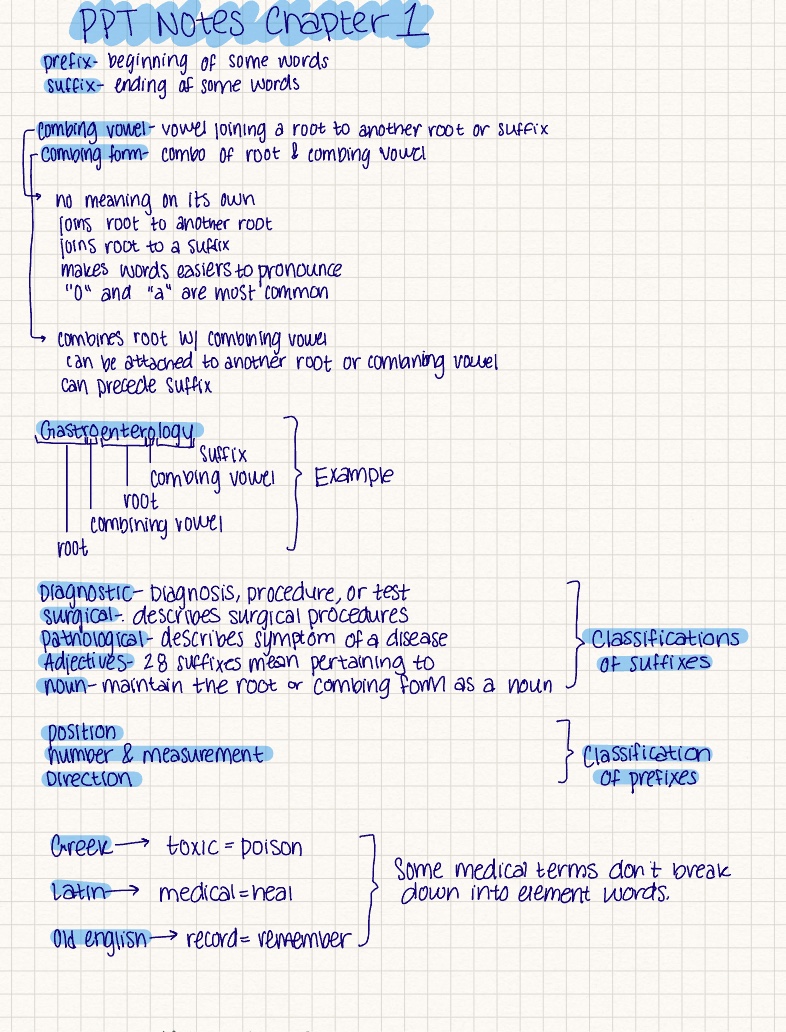 PPT Notes Chapter 1
prefix- beginning of some words
suffix- ending of some words
combing vowel- vowel joining a root to another root or suffix
combing form- combo of root & combing vowel
no meaning on its own
joins root to another root
joins root to a suffix
makes words easiers to pronounce
"O" and "a" are most common
combines root w/ combining vowel
can be attached to another root or combining vowel
can precede suffix
Gastroenterology
suffix
combing vowel
Example
root
combining vowel
root
Diagnostic- Diagnosis, procedure, or test
surgical-. describes surgical procedures
pathological- describes symptom of a disease
Classifications
Adjectives- 28 suffixes mean pertaining to
of suffixes
noun- maintain the root or combing form as a noun
position
number & measurement
Classification
Direction
of prefixes
Greek → toxic = poison
Some medical terms don't break
Latin → medical = heal
down into element words.
Old english → record = remember